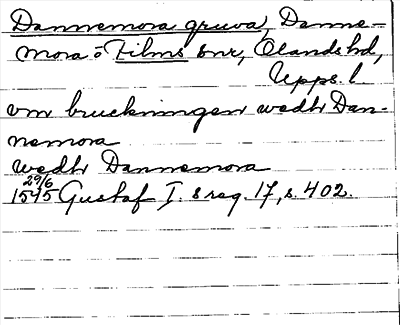 Dannemora gruva, Danne-
mora o Films snr, Ölands hd,
Upps. l.
vm bruckningen wedh Dan-
nemora
wedh Dannemora
29/6
1545 Gustaf I:s reg. 17, s. 402.